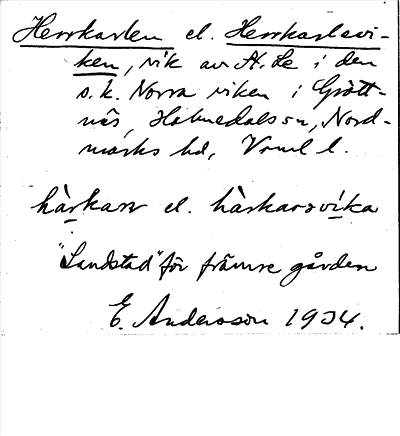 Herrkarlen el. Herrkarlsvi-
ken, vik av St. Le i den
s.k. Norra viken i Grött-
näs, Holmedals sn, Nord-
marks hd, Vrml l.
hàrkaɹ el. hàrkaɹsvika
"Landstad" för främre gården
E. Andersson 1934.